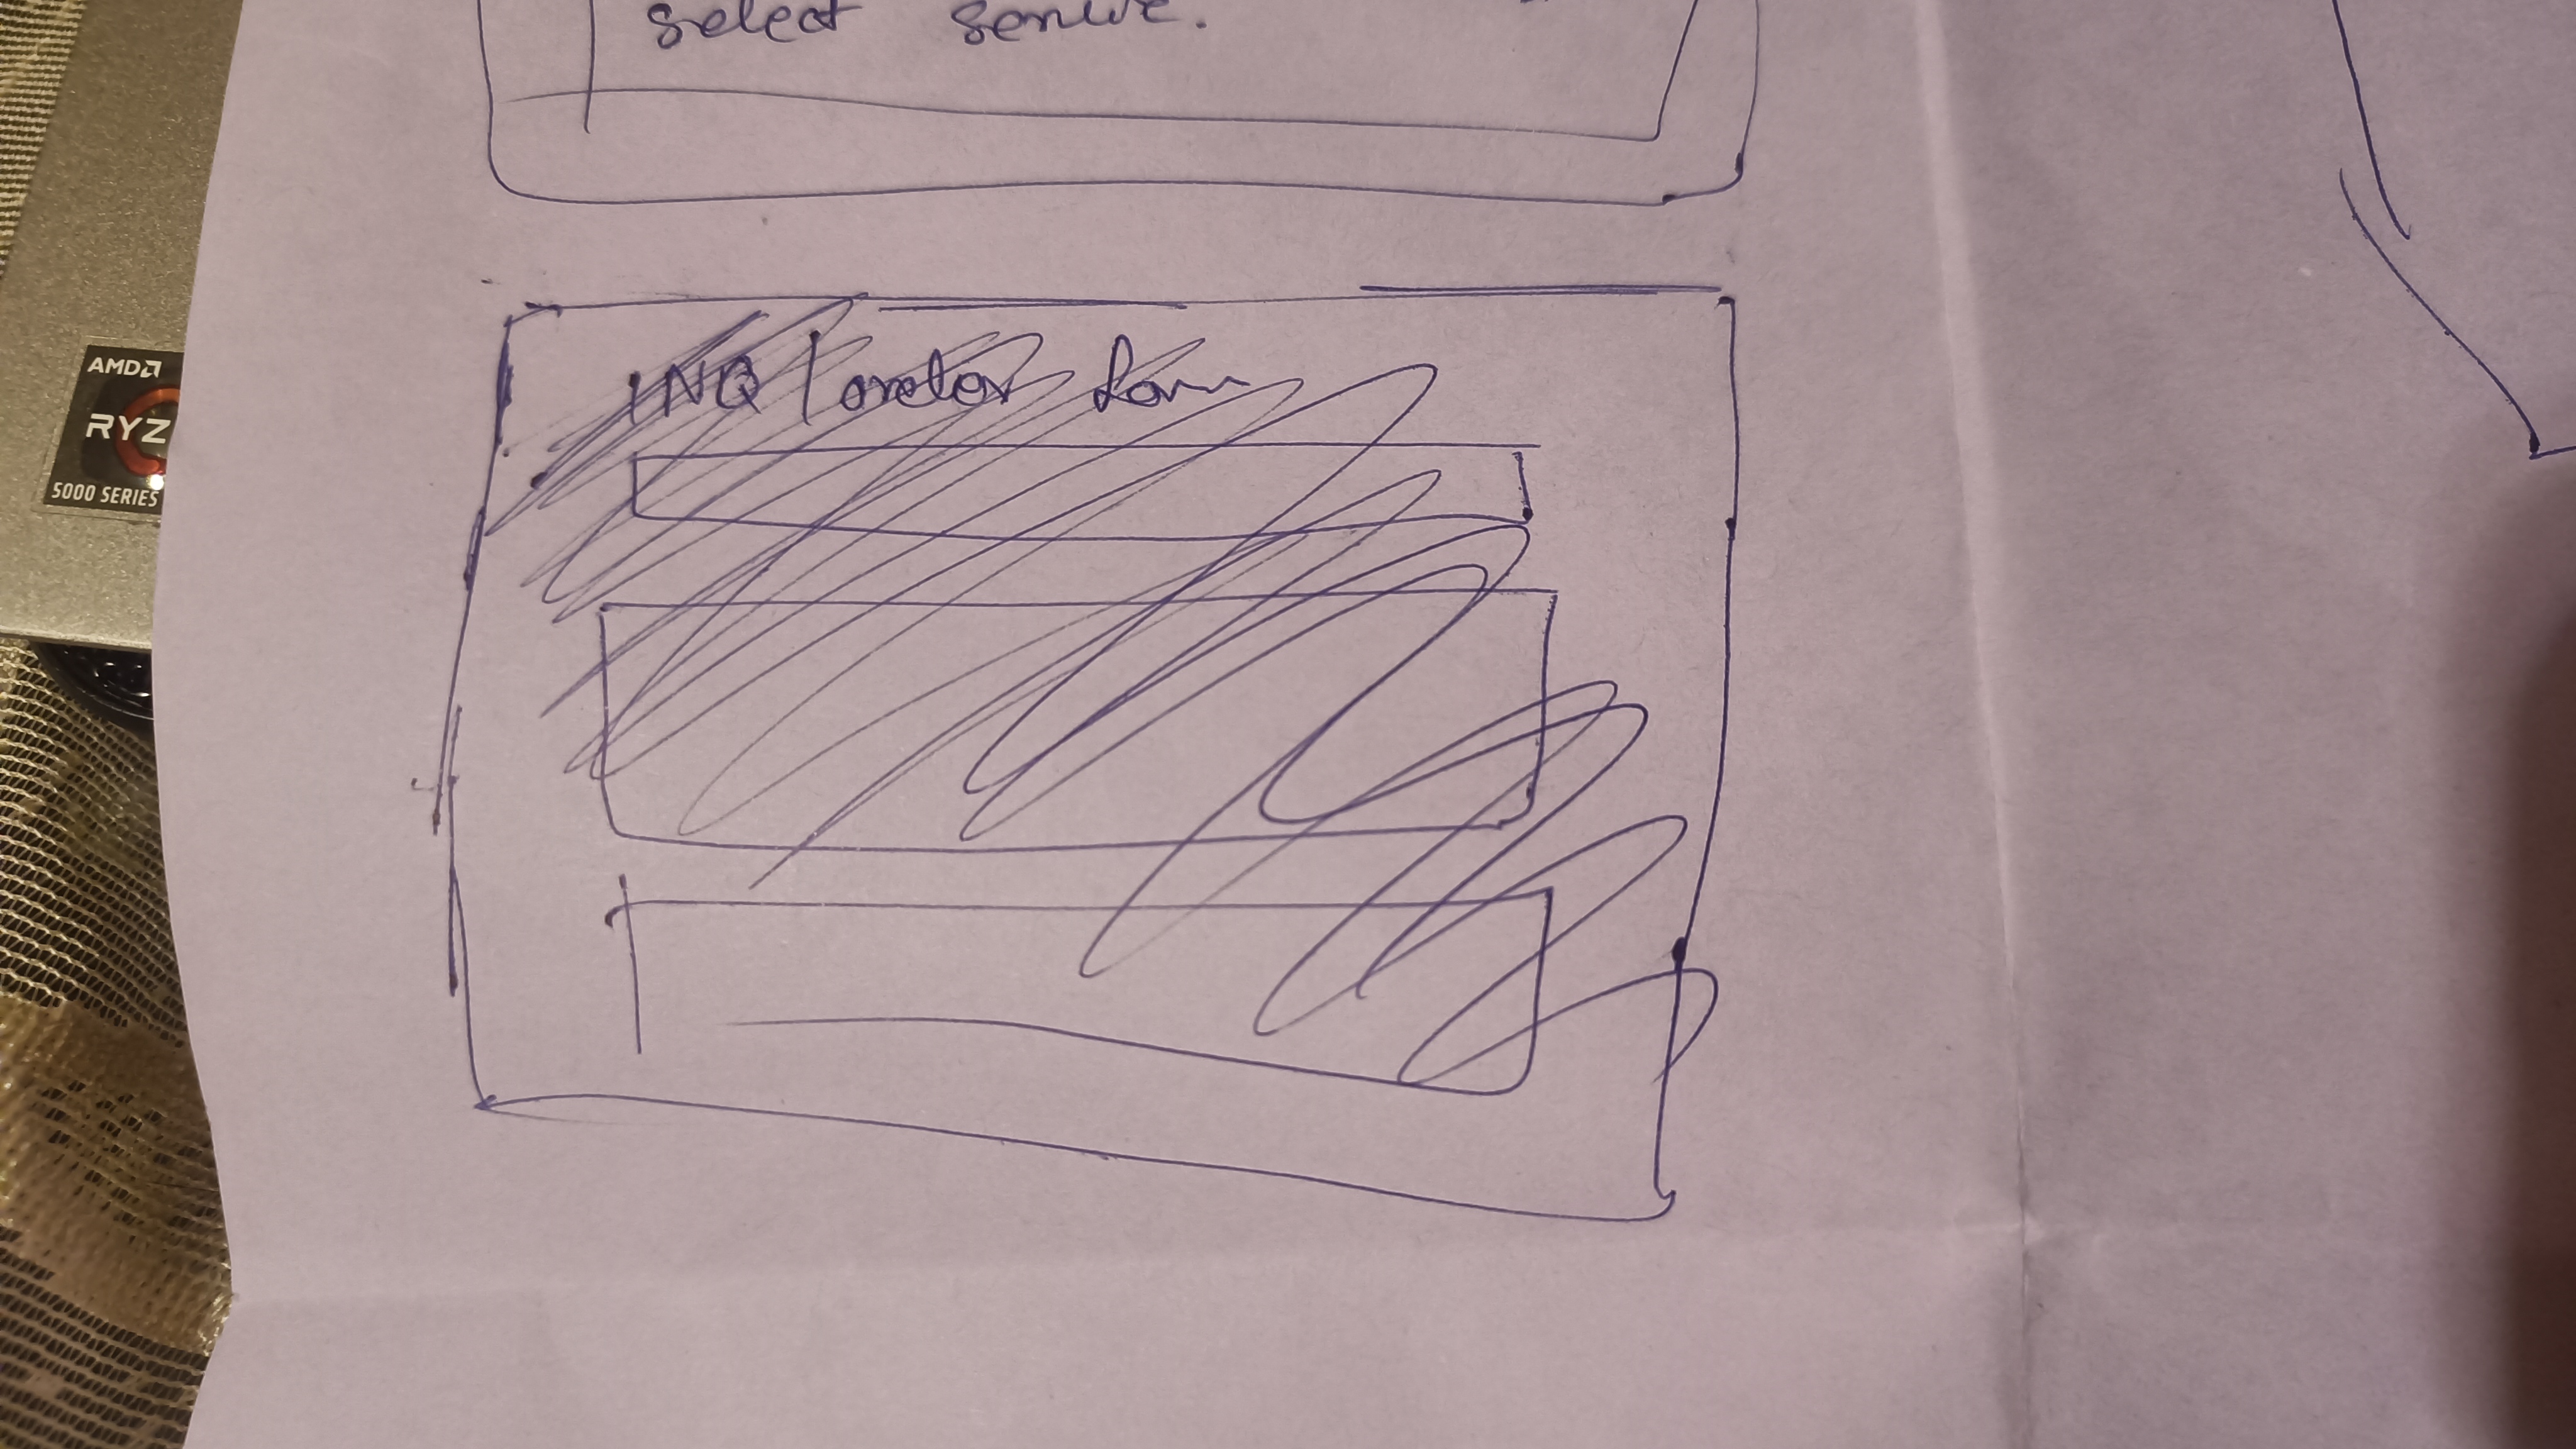 select service.
INQ / order form
AMD
RYZ
5000 SERIES